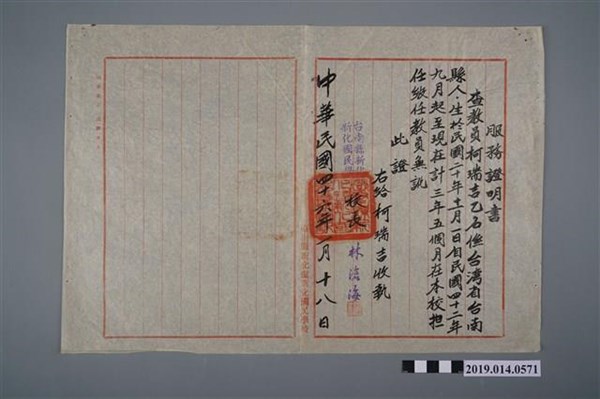 服務證明書
查教員柯瑞吉乙名係台灣省台南
縣人.生於民國二十年十二月一日自民國四十二年
九月起至現在計三年五個月在本校担
任級任教員無訛
此證
右給柯瑞吉收執
台南縣新化
新化國民
校長 林滄海
中華民國四十六年一月十八日
2019.014.0571